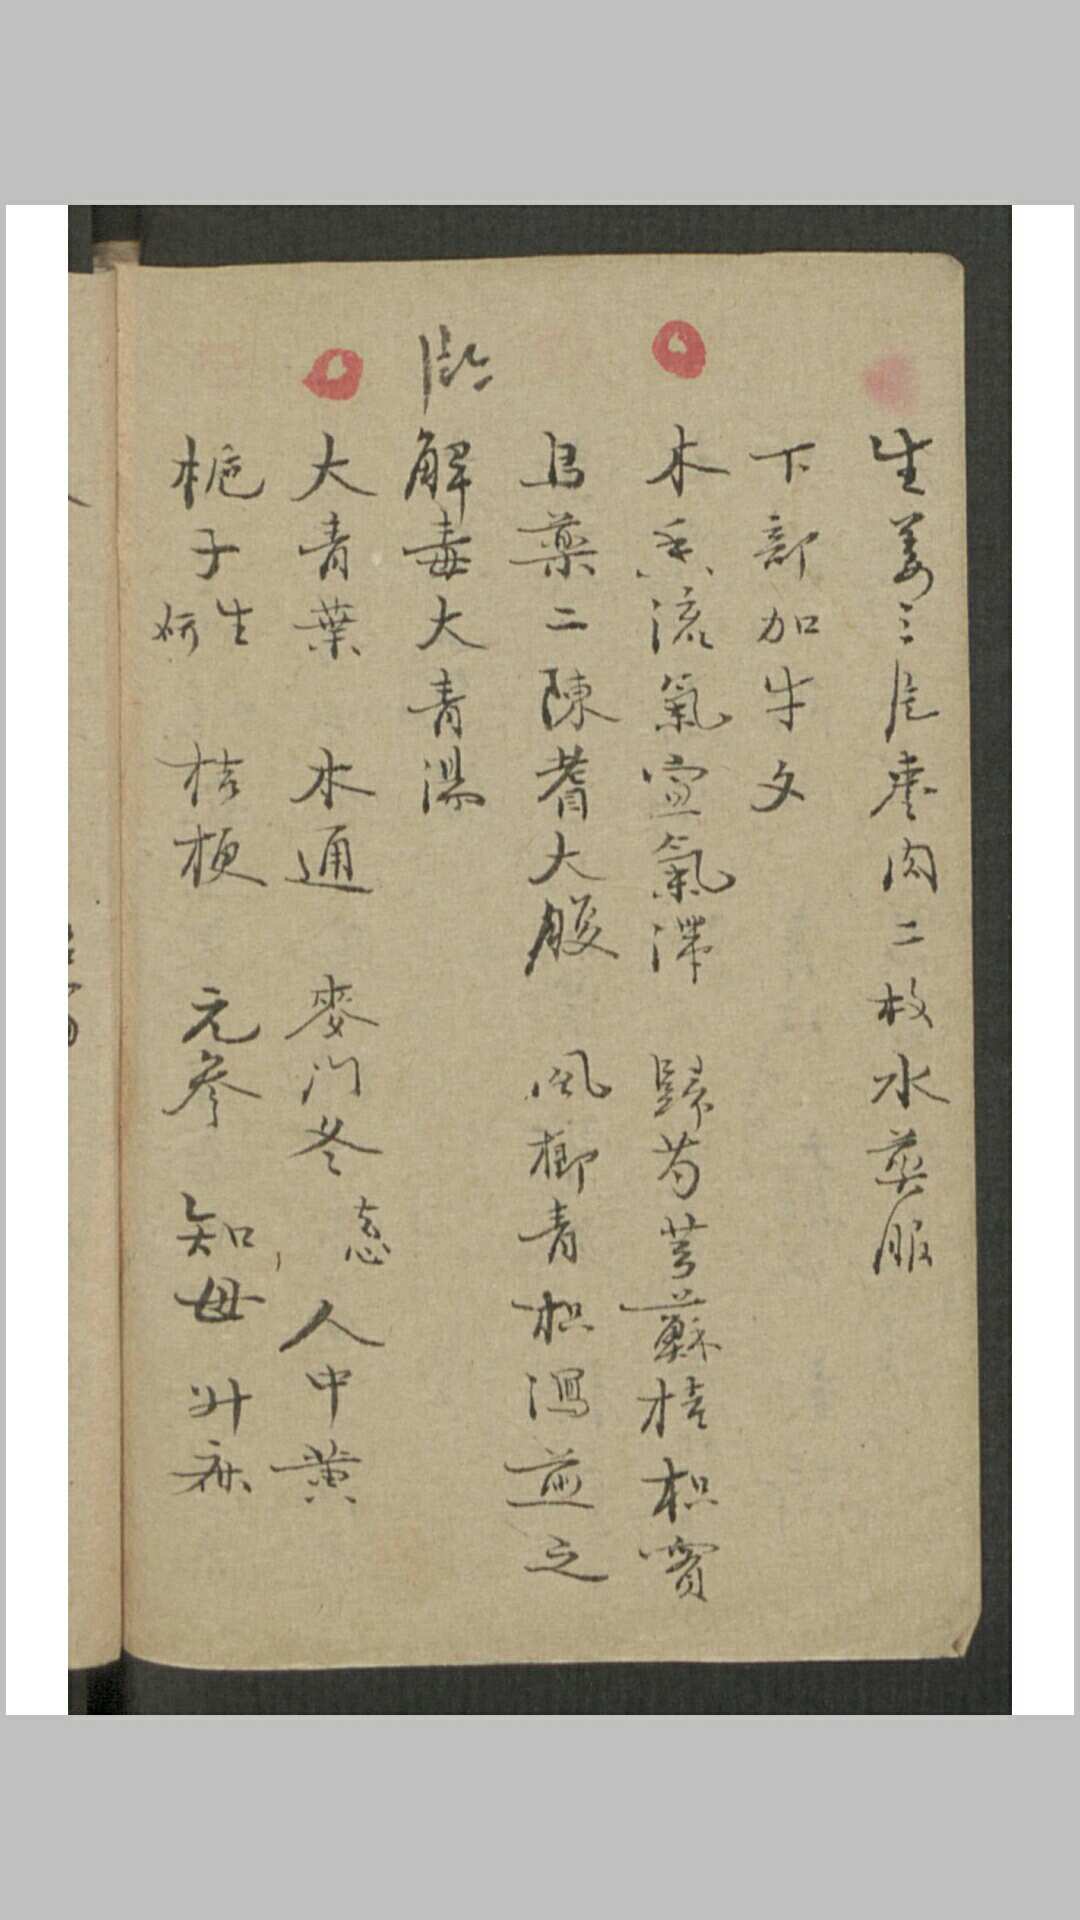 生姜三片枣肉二枚水煎服
下部加牛夕
木香流氣宣氣滯 歸芍芎蘇桔枳實
烏藥二陳耆大腹 風榔青枳瀉煎之
臨 解毒大青湯
大青葉 木通 麥门冬 去心 人中黄
梔子 生研 桔梗 元參 知母 升麻